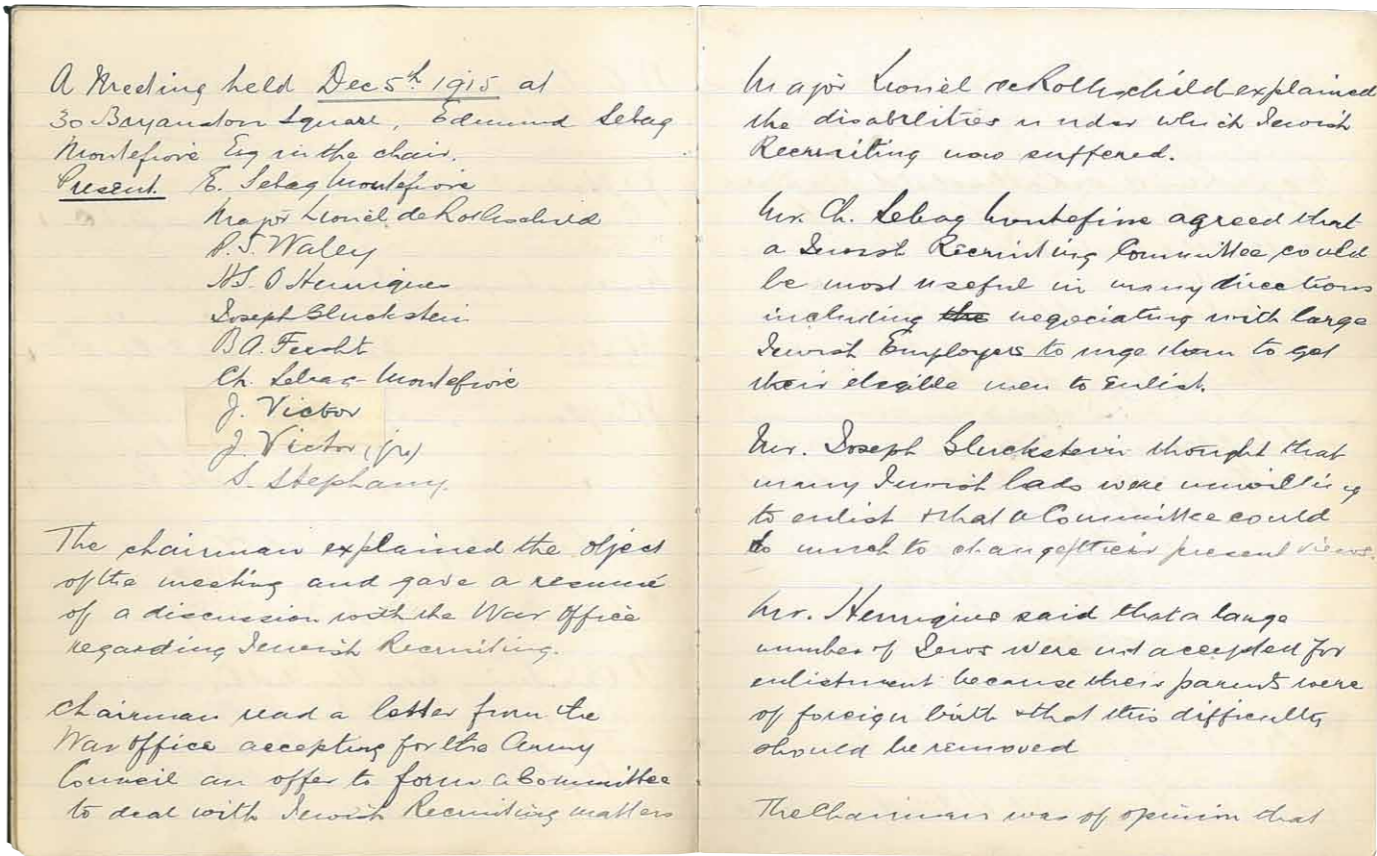 A Meeting held Dec 5th 1915 at
30 Bryanston Square, Edmund Sebag
Montefiore Esq in the chair.
Present. E. Sebag Montefiore
Major Lionel de Rothschild
P.J. Waley
H.S. Q Henriques
Joseph Gluckstein
B.A. Fersht
Ch. Sebag-Montefiore
J. Victor
J. Victor, (jr)
S. Stephany.
The chairman explained the object
of the meeting and gave a resumé
of a discussion with the War Office
regarding Jewish Recruiting.
Chairman read a letter from the
War office accepting for the Army
Council an offer to form a Committee
to deal with Jewish Recruiting matters
Major Lionel de Rothschild explained
the disabilities under which Jewish
Recruiting now suffered.
Mr. Ch. Sebag Montefiore agreed that
a Jewish Recruiting Committee could
be most useful in many directions
including the negociating with large
Jewish Employers to urge them to get
their elegible men to enlist.
Mr. Joseph Gluckstein thought that
many Jewish lads were unwilling
to enlist & that a Committee could
do much to change their present views.
Mr. Henriques said that a large
number of Jews were not accepted for
enlistment because their parents were
of foreign birth & that this difficulty
should be removed
The Chairman was of opinion that